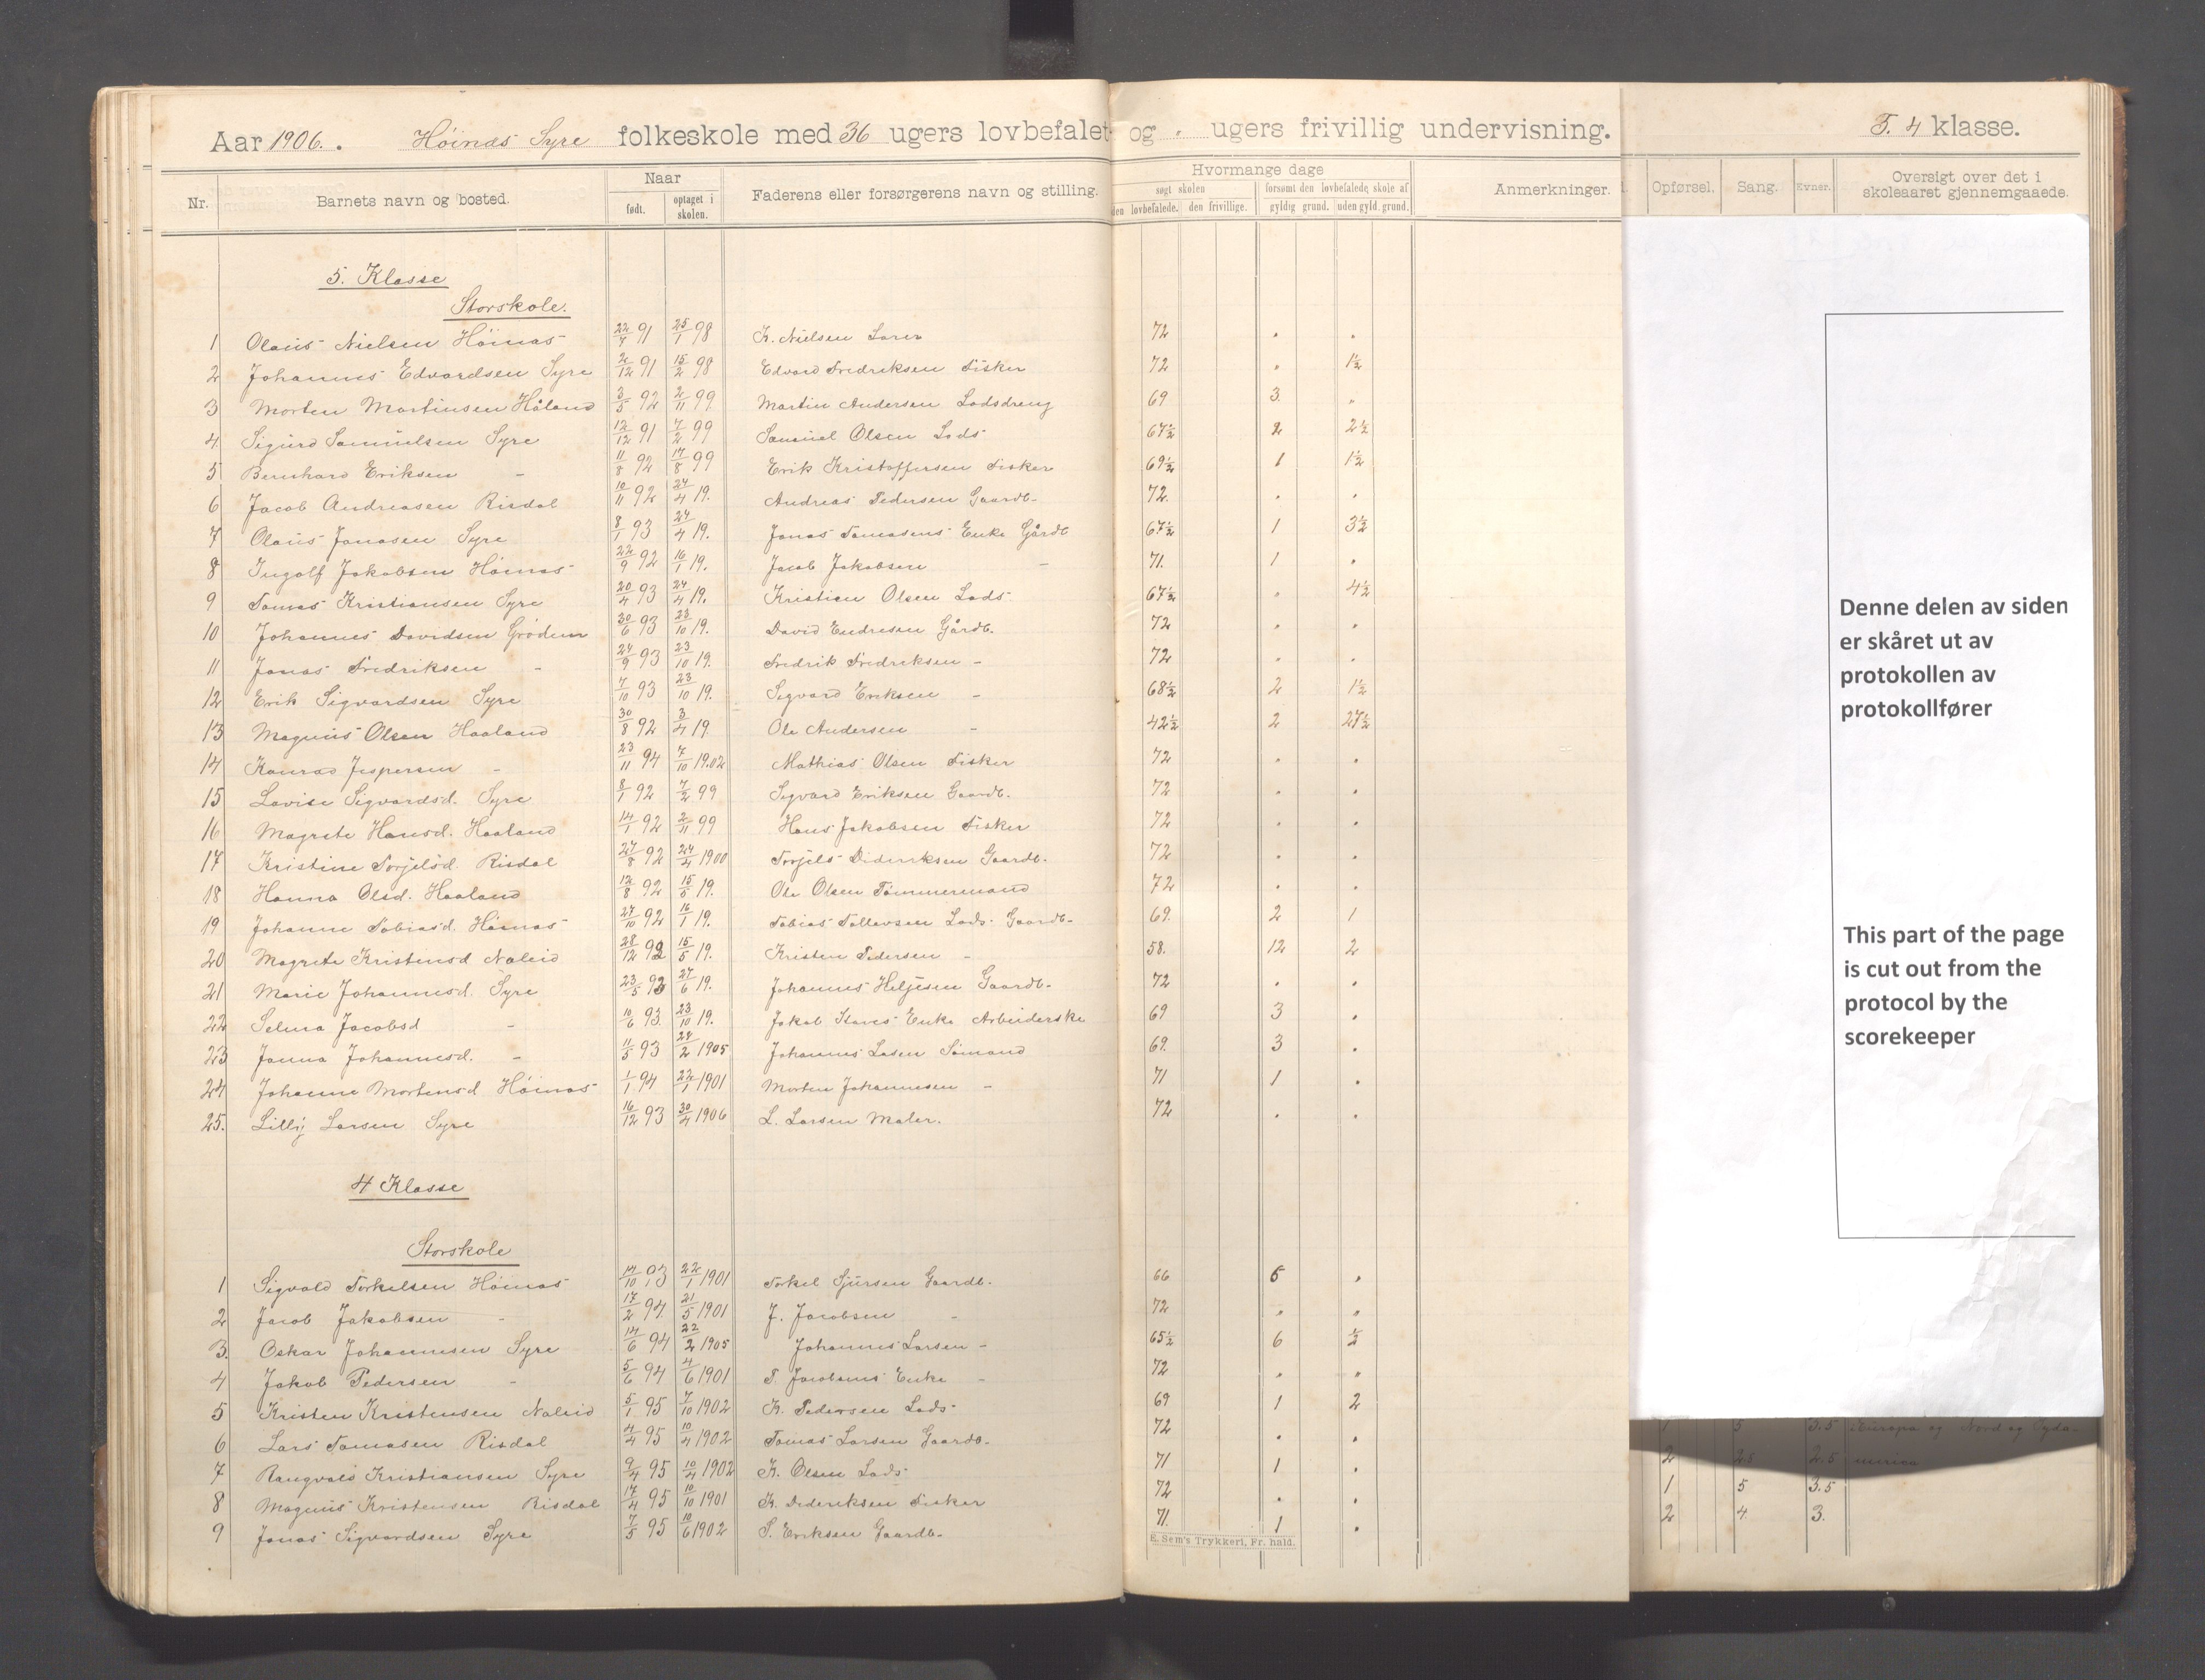 Aar 1906. Höinæs Syre folkeskole med 36 ugers lovbefalet og - ugers frivillig undervisning.
F. 4 klasse.
Nr. Barnets navn og bosted. Naar født. optaget i skolen. Faderens eller forsørgerens navn og stilling. Hvormange dage søgt skolen den lovbefalede. den frivillige. forsømt den lovbefalede skole af gyldig grund. uden gyld. grund. Anmerkninger.
Opførsel. Sang. Evner. Oversigt over det i skoleaaret gjennemgaaede.
5. Klasse
Storskole.
1 Olaus Nielsen Höinæs 22/7 91 25/1 98 K. Nielsen Lærer 72 . .
2 Johannes Edvardsen Syre 2/12 91 15/2 98 Edvard Fredriksen Fisker 72 . 1½
3 Morten Martinsen Håland 3/5 92 2/11 99 Martin Andersen Lodsdreng 69 3 .
4 Sigurd Samuelsen Syre 12/12 91 7/2 99 Samuel Olsen Lods 67½ 2 2½
5 Bernhard Eriksen - 11/8 92 17/8 99 Erik Kristoffersen Fisker 69½ 1 1½
6 Jacob Andreasen Risdal 10/11 92 24/4 19. Andreas Pedersen Gaardb- 72. . .
7 Olaus Jonasen Syre 8/1 93 24/4 19. Jonas Tomasens Enke Gårdb 67½ 1 3½
8 Ingolf Jakobsen Höinæs 22/9 92 16/1 19. Jacob Jakobsen - 71. 1 .
9 Tomas Kristiansen Syre 20/4 93 24/4 19. Kristian Olsen Lods 67½ . 4½
10 Johannes Davidsen Grödem 30/6 93 23/10 19. David Endresen Gårdb. 72 . .
11 Jonas Fredriksen - 24/9 93 23/10 19. Fredrik Fredreksen - 72 . .
12 Erik Sigvardsen Syre 7/10 93 23/10 19. Sigvard Eriksen - 68½ 2 1½
13 Magnus Olsen Haaland 30/8 92 3/4 19. Ole Andersen - 42½ 2 27½
14 Konrad Jespersen - 23/11 94 7/10 19.02 Mathias Olsen Fisker 72 . .
15 Lovise Sigvardsd. Syre 8/1 92 7/2 99 Sigvard Eriksen Gaardb. 72 . .
16 Magrete Hansd. Haaland 14/1 92 2/11 99 Hans Jakobsen Fisker 72 . .
17 Kristine Torjelsd. Risdal 27/8 92 24/4 1900 Torjels Dideriksen Gaardb. 72 . .
18 Hanna Olsd. Haaland 12/8 92 15/5 19. Ole Olsen Tømmermand 72 . .
19 Johanne Tobiasd. Höinæs 27/10 92 16/1 19. Tobias Tollevsen Lods Gaardb- 69. 2 1
20 Magrete Kristensd Naleid 28/12 92 15/5 19. Kristen Pedersen - 58. 12 2
21 Marie Johannesd. Syre 23/5 93 27/6 19. Johannes Heljesen Gaardb- 72 . .
22 Selma Jacobsd - 10/6 93. 23/10 19. Jakob Enke Arbeiderske 69 3 .
23 Janna Johannesd. - 11/5 93 22/2 1905 Johannes Lasen Sömand 69. 3 .
24 Johanne Mortensd Höinæs 1/1 94 22/1 1901 Morten Johannesen - 71 1 .
25. Lilly Larsen Syre 16/12 93 30/4 1906 L. Larsen Maler. 72 . .
4 Klasse
Storskole
1 Sigvald Torkelsen Höinæs 14/10 93 22/1 1901 Torkel Sjursen Gaardb. 66 5 .
2 Jacob Jakobsen - 17/2 94 21/5 1901 J. Jacobsen - 72 . .
3. Oskar Johannesen Syre 14/6 94 22/2 1905 Johannes Larsen - 65½ 6 ½
4 Jakob Pedersen - 5/6 94 4/6 1901 P. Jacobsens Enke - 72 . .
5 Kristen Kristensen Naleid 5/1 95 7/10 1902 K. Pedersen Lods 69 1 2
6 Lars Tomasen Risdal 4/4 95 10/4 1902 Tomas Larsen Gaardb. 72 . .
7 Rangvald Kristiansen Syre 9/4 95 10/4 1902 K. Olsen Lods 71 1 .
8 Magnus Kristensen Risdal 17/4 95 10/10 1901 K. Dedereksen Fisker 72 . .
9 Jonas Sigvardsen Syre 7/5 95 10/6 1902 S. Eriksen Gaardb- 71. 1 .
E. Sem's Trykkeri, Fr. hald.
Denne delen av siden
er skåret ut av
protokollen av
protokollfører
This part of the page
is cut out from the
protocol by the
scorekeeper
1 3 3.5 i Europa og Nord og Syda-
2 2.5 2.5 merica
1 5 3.5
2 4. 3.